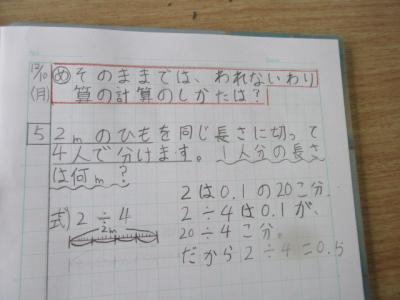 12/10
(月)
め そのままでは、われないわり
算の計算のしかたは?
5 2mのひもを同じ長さに切って
4人で分けます。1人分の長さ
は何m?
式) 2÷4
2m
2は0.1の20こ分.
2÷4は0.1が、
20÷4こ分。
だから2÷4=0.5